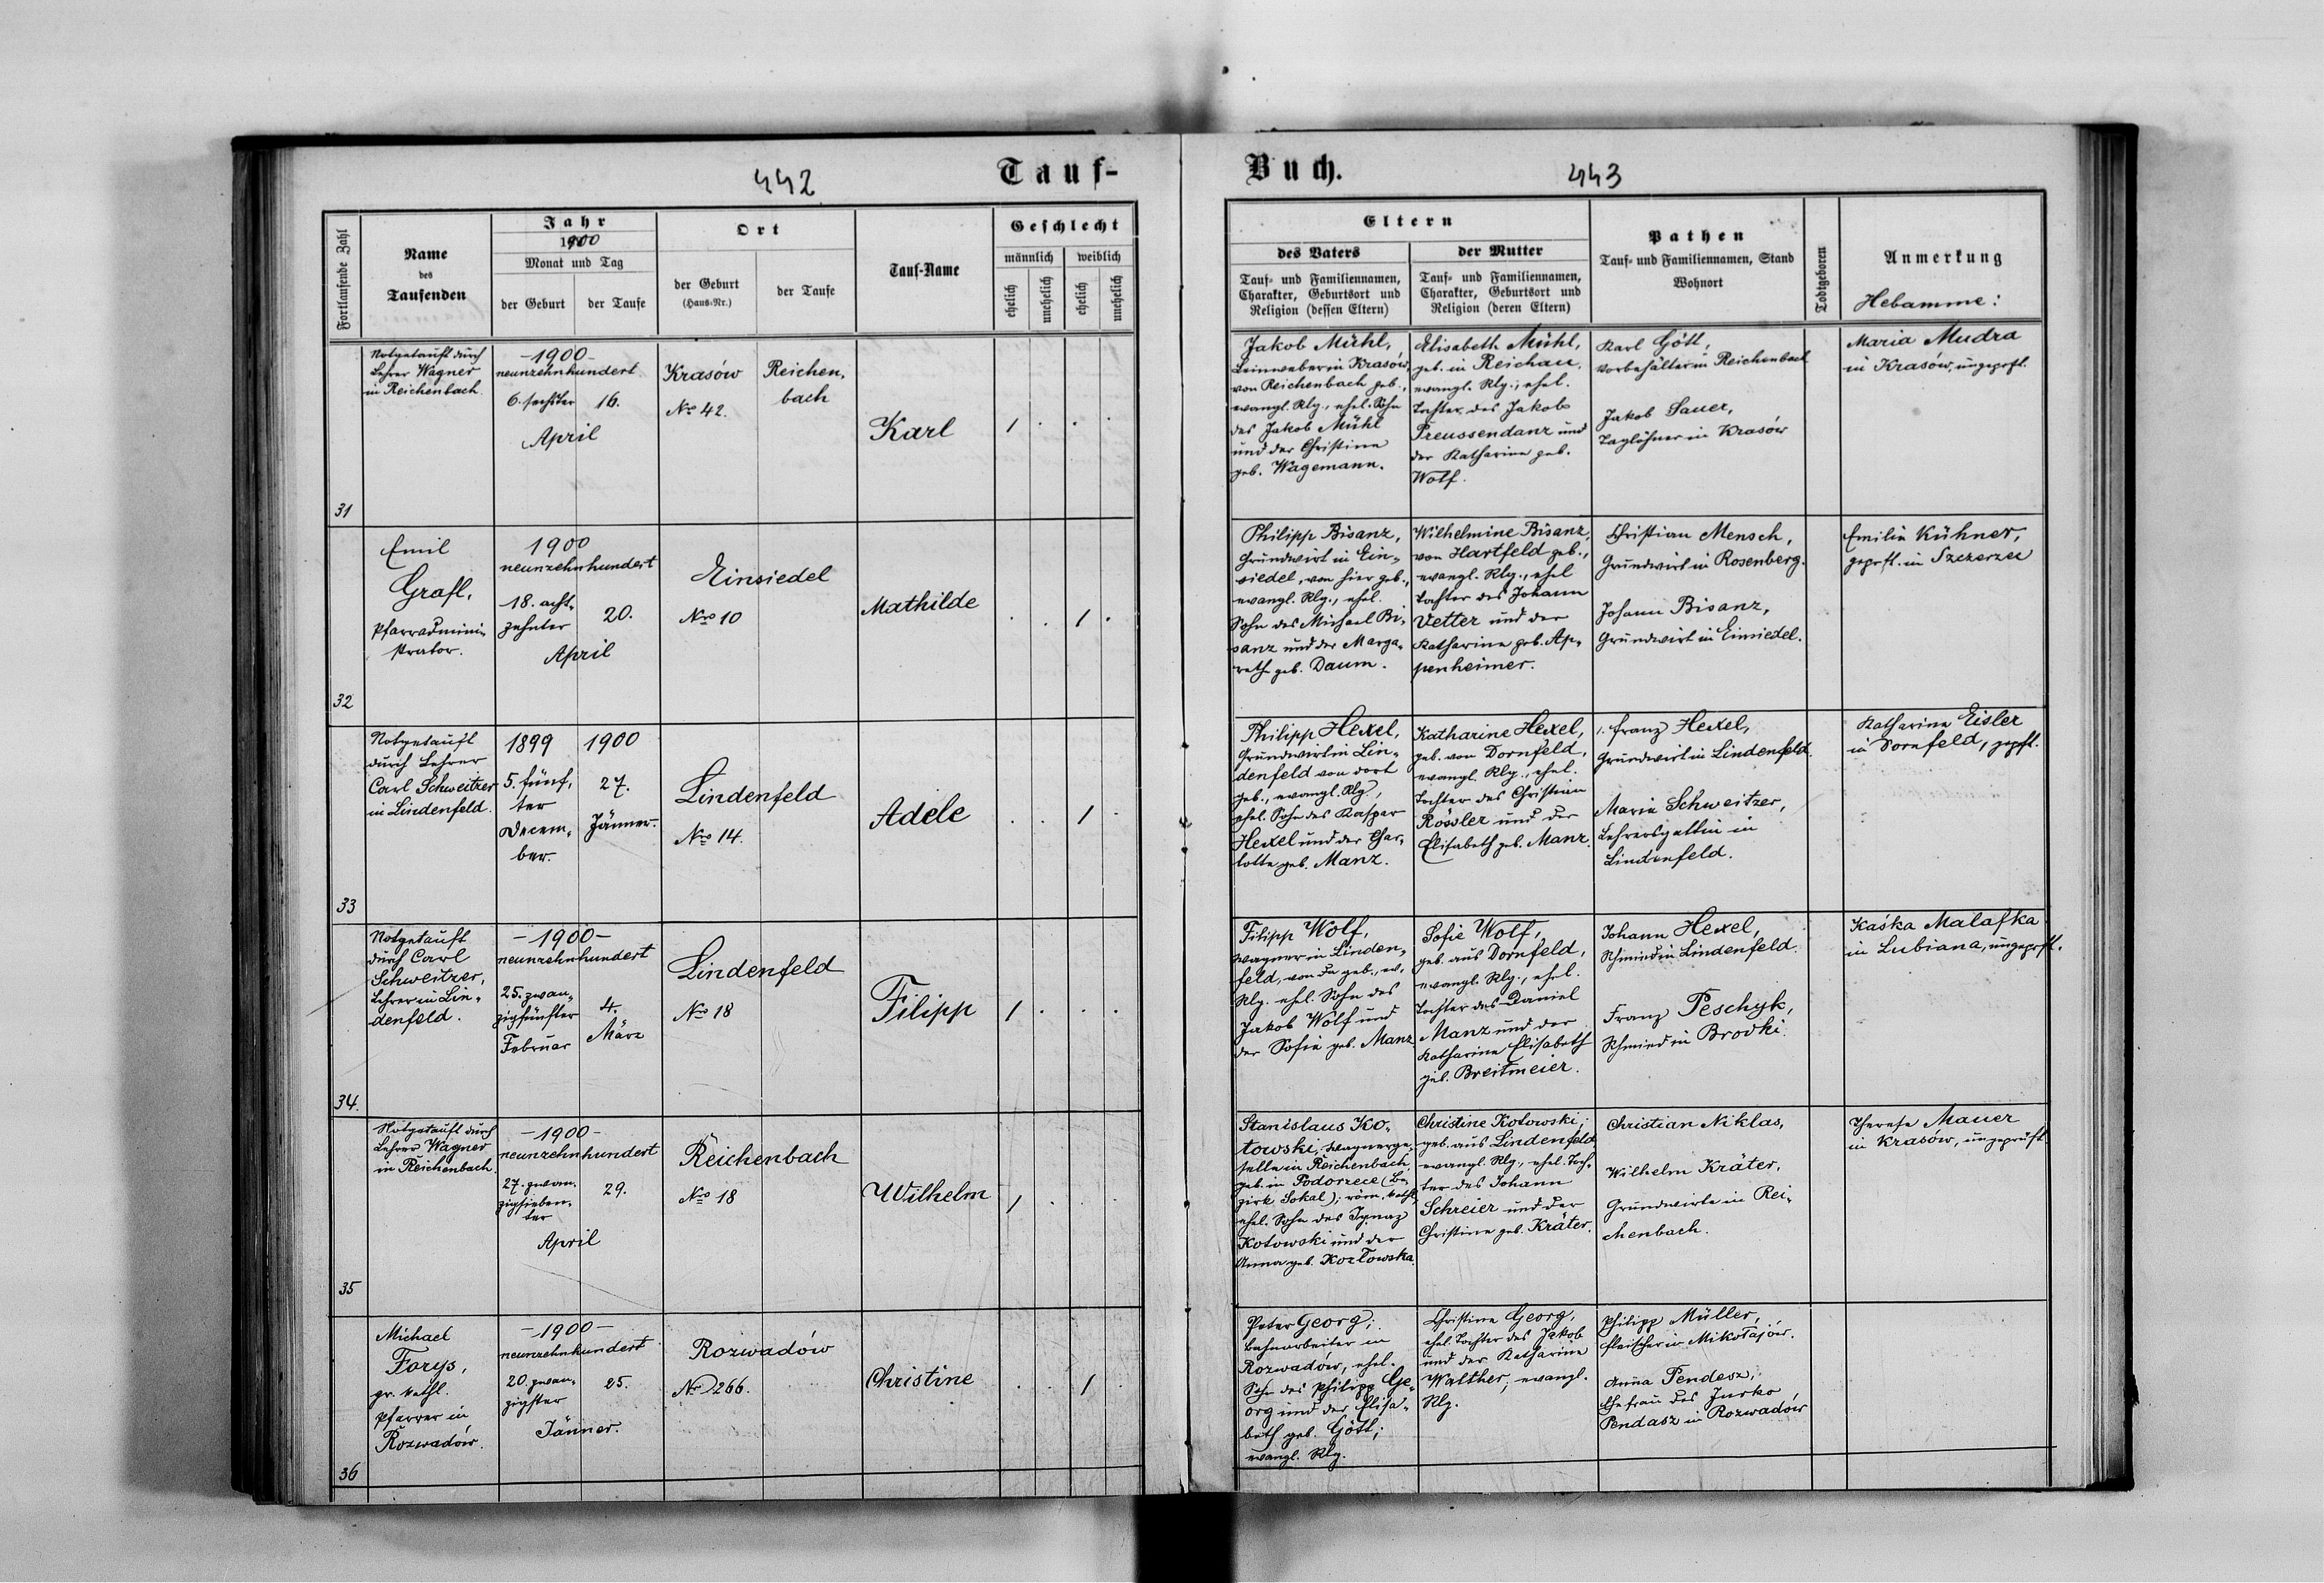 442
Tauf-
Fortlaufende Zahl
Name
des
Taufenden
Jahr
1900
Monat und Tag
der Geburt
der Taufe
Ort
der Geburt
(Haus-Nr.)
der Taufe
Tauf-Name
Geschlecht
männlich
weiblich
ehelich
unehelich
ehelich
unehelich
31
Notgetauft durch
Lehrer Wagner
in Reichenbach.
-1900-
neunzehnhundert
6. sechster
16.
April
Krasów
No 42.
Reichen-
bach
Karl
1
32
Emil
Grafl,
Pfarradmini-
strator.
1900
neunzehnhundert
18. acht-
zehnter
20.
April
Einsiedel
Nro 10
Mathilde
1
33
Notgetauft
durch Lehrer
Carl Schweitzer
in Lindenfeld.
1899
5. fünf-
ter
Decem-
ber.
1900
27.
Jänner.
Lindenfeld
Nro 14.
Adele
1
34.
Notgetauft
durch Carl
Schweitzer,
Lehrer in Lin-
denfeld.
-1900-
neunzehnhundert
25. zwan-
zigfünfter
Februar
4.
März
Lindenfeld
Nro 18
Filipp
1
35
Notgetauft durch
Lehrer Wagner
in Reichenbach
-1900-
neunzehnhundert
27. zwan-
zigsieben-
ter
29.
April
Reichenbach
Nro 18
Wilhelm
1
36
Michael
Forys,
gr. kathl.
Pfarrer in
Rozwadów.
-1900-
neunzehnhundert
20. zwan-
zigster
25.
Jänner.
Rozwadów
No 266.
Christine
1
Buch.
443
Eltern
des Vaters
Tauf- und Familiennamen,
Charakter, Geburtsort und
Religion (dessen Eltern)
der Mutter
Tauf- und Familiennamen,
Charakter, Geburtsort und
Religion (deren Eltern)
Pathen
Tauf- und Familiennamen, Stand
Wohnort
Todtgeboren
Anmerkung
Hebamme:
Jakob Mühl,
Leinweber in Krasów,
von Reichenbach geb.,
evangl. Rlg., ehel. Sohn
des Jakob Mühl
und der Christine
geb. Wagemann.
Elisabeth Mühl,
geb. in Reichau,
evangl. Rlg., ehel.
Tochter des Jakob
Preussendanz und
der Katharina geb.
Wolf.
Karl Gött,
in Reichenbach
Jakob Sauer,
Taglöhner in Krasów
Maria Mudra
in Krasów, ungeprft.
Philipp Bisanz,
Grundwirt in Ein-
siedel, von hier geb.,
evangl. Rlg., ehel.
Sohn des Michael Bi-
sanz und der Marga-
reth geb. Daum.
Wilhelmine Bisanz,
von Hartfeld geb.,
evangl. Rlg., ehel
Tochter des Johann
Vetter und der
Katharina geb. Ap-
penheimer.
Christian Mensch,
Grundwirt in Rosenberg.
Johann Bisanz,
Grundwirt in Einsiedel.
Emilie Kühner,
geprft. in Szczerzec
Philipp Hexel,
Grundwirt in Lin-
denfeld von dort
geb., evangl. Rlg.,
ehel. Sohn des Kaspar
Hexel und der Char-
lotte geb. Manz.
Katharine Hexel,
geb. von Dornfeld,
evangl. Rlg., ehel.
Tochter des Christian
Rössler und der
Elisabeth geb. Manz.
1. Franz Hexel,
Grundwirt in Lindenfeld.
Maria Schweitzer,
Lehrersgattin in
Lindenfeld.
Katharina Eisler
in Dornfeld, geprft.
Filipp Wolf,
Wagner in Linden-
feld, von da geb., ev.
Rlg. ehel. Sohn des
Jakob Wolf und
der Sofie geb. Manz
Sofie Wolf,
geb. aus Dornfeld,
evangl. Rlg., ehel.
Tochter des Daniel
Manz und der
Katharina Elisabeth
geb. Breitmeier.
Johann Hexel,
Schmied in Lindenfeld.
Franz Peschyk,
Schmied in Brodki.
Kaśka Malafka
in Lubiana, ungeprft.
Stanislaus Ko-
towski, Wagnerge-
selle in Reichenbach,
geb. in Podorzece (Be-
zirk Sokal); röm. kathl.,
ehel. Sohn des Ignaz
Kotowski und der
Anna geb. Kozłowska.
Christine Kotowski;
geb. aus Lindenfeld
evangl. Rlg., ehel. Toch-
ter des Johann
Schreier und der
Christine geb. Kräter.
Christian Niklas,
Wilhelm Kräter,
Grundwirte in Rei-
chenbach.
Therese Mauer
in Krasów, ungeprüft
Peter Georg;
Bahnarbeiter in
Rozwadów, ehel.
Sohn des Philipp Ge-
org und der Elisa-
beth geb. Gött;
evangl. Rlg.
Christine Georg,
ehel. Tochter des Jakob
und der Katharina
Walther; evangl.
Rlg.
Philipp Müller,
Fleischer in Mikołajów.
Anna Pendasz;
Ehefrau des Jurko
Pendasz in Rozwadów